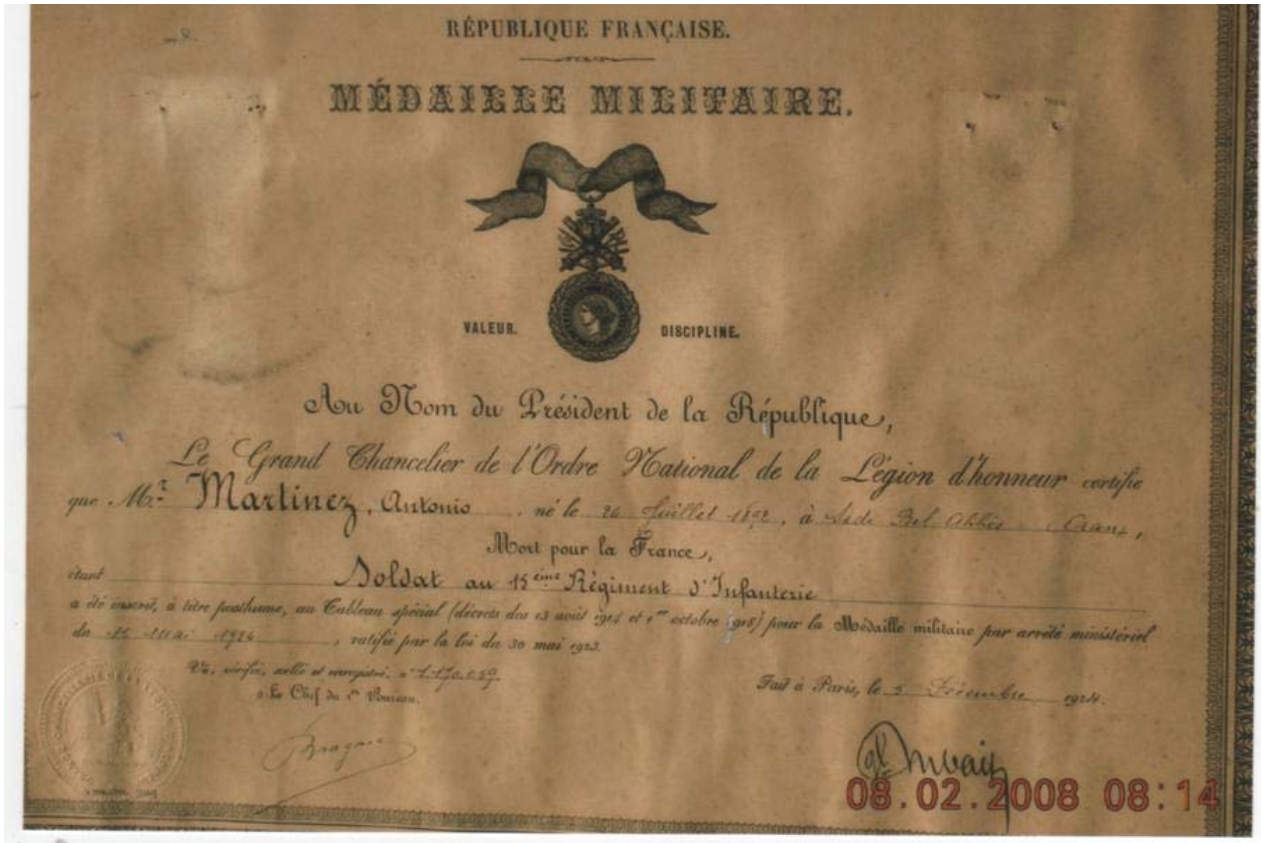 RÉPUBLIQUE FRANÇAISE.
MÉDAILLE MILITAIRE.
VALEUR. DISCIPLINE.
Au Nom du Président de la République,
Le Grand Chancelier de l'Ordre National de la Légion d'honneur certifie
que M.r Martinez, Antonio, né le 26 Juillet, à Sidi Bel Abbès (Oran),
Mort pour la France,
étant Soldat au 15ème Régiment d'Infanterie
a été inscrit, à titre posthume, au Tableau spécial (décrets des 13 août 1914 et 1er octobre 1918) pour la Médaille militaire par arrêté ministériel
du 15 Mai, ratifié par la loi du 30 mai 1923.
Vu, vérifié, scellé et enregistré, n° 1.170.059
Le Chef du 1er Bureau.
Fait à Paris, le 5 Décembre 1924.
08.02.2008 08:14